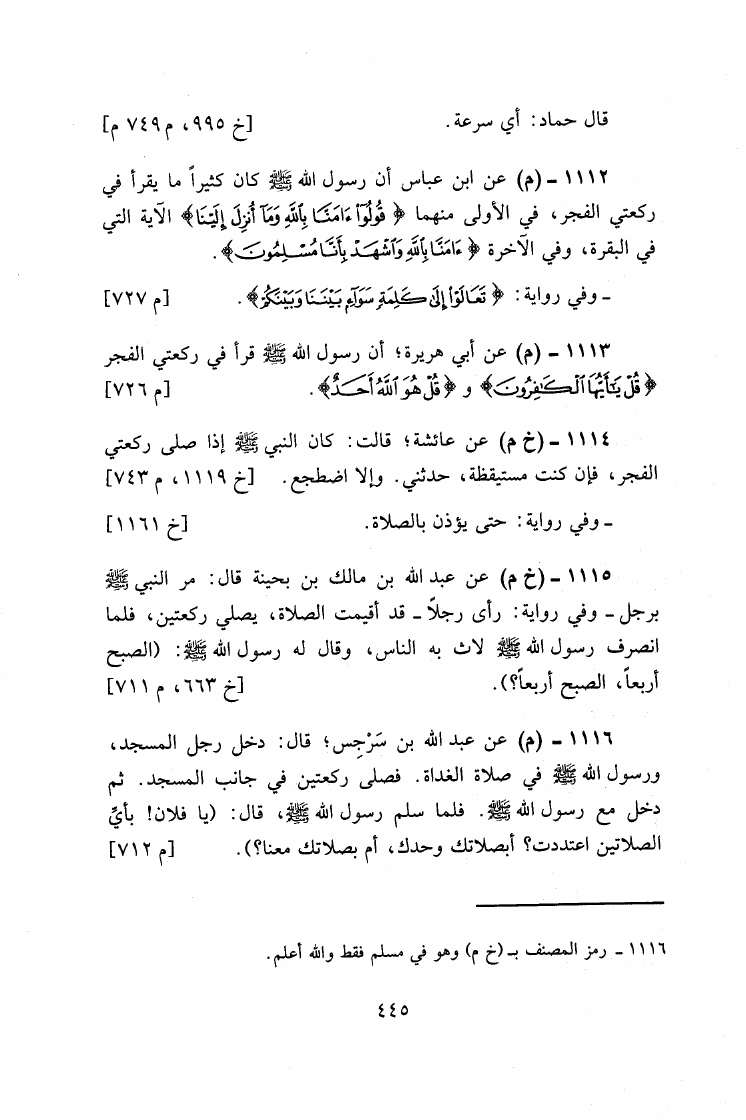 قال حماد: أي سرعة. [خ ٩٩٥، م ٧٤٩ م]
١١١٢ - (م) عن ابن عباس أن رسول الله ﷺ كان كثيراً ما يقرأ في
ركعتي الفجر، في الأولى منهما ﴿ قُولُوٓا۟ ءَامَنَّا بِٱللَّهِ وَمَآ أُنزِلَ إِلَيْنَا﴾ الآية التي
في البقرة، وفي الآخرة ﴿ ءَامَنَّا بِٱللَّهِ وَٱشْهَدْ بِأَنَّا مُسْلِمُونَ﴾.
- وفي رواية: ﴿ تَعَالَوْا۟ إِلَىٰ كَلِمَةٍ سَوَآءٍ بَيْنَنَا وَبَيْنَكُمْ﴾. [م ٧٢٧]
١١١٣ - (م) عن أبي هريرة؛ أن رسول الله ﷺ قرأ في ركعتي الفجر
﴿ قُلْ يَٰٓأَيُّهَا ٱلْكَٰفِرُونَ﴾ و ﴿قُلْ هُوَ ٱللَّهُ أَحَدٌ﴾. [م ٧٢٦]
١١١٤ - (خ م) عن عائشة؛ قالت: كان النبي ﷺ إذا صلى ركعتي
الفجر، فإن كنت مستيقظة، حدثني. وإلا اضطجع. [خ ١١١٩، م ٧٤٣]
- وفي رواية: حتى يؤذن بالصلاة. [خ ١١٦١]
١١١٥ - (خ م) عن عبد الله بن مالك بن بحينة قال: مر النبي ﷺ
برجل - وفي رواية: رأى رجلاً - قد أقيمت الصلاة، يصلي ركعتين، فلما
انصرف رسول الله ﷺ لاث به الناس، وقال له رسول الله ﷺ: (الصبح
أربعاً، الصبح أربعاً؟). [خ ٦٦٣، م ٧١١]
١١١٦ - (م) عن عبد الله بن سَرْجِس؛ قال: دخل رجل المسجد،
ورسول الله ﷺ في صلاة الغداة. فصلى ركعتين في جانب المسجد. ثم
دخل مع رسول الله ﷺ. فلما سلم رسول الله ﷺ، قال: (يا فلان! بأيِّ
الصلاتين اعتددت؟ أبصلاتك وحدك، أم بصلاتك معنا؟). [م ٧١٢]
١١١٦ - رمز المصنف بـ (خ م) وهو في مسلم فقط والله أعلم.
٤٤٥